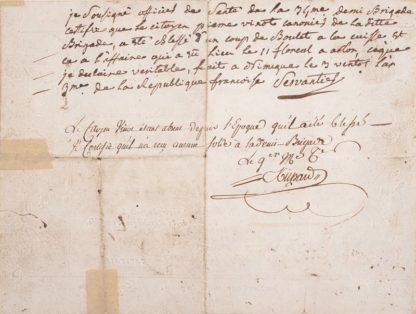 je Soussigné officier de Santé de la 74me demi Brigade
certifie que le citoyen pierre vinet canonier de la dite
Brigade, a été Blessé d'un coup de Boulet a la cuisse et
ça a l'affaire qui a été lieu le 11 floreal a arlon, ce que
je declare veritable, fait a le 3 ventos l'an
3me de la Republique francoise Servantie
Le Citoyen Vinet étant absent depuis l'Epoque qu'il a été blessé
Certifie qu'il n'a reçu aucune solde a la demie Brigade
Le qer Me